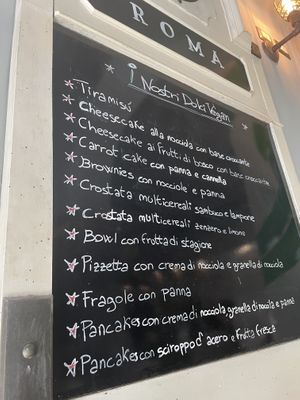 ROMA
I Nostri Dolci Vegan
Tiramisù
Cheesecake alla nocciola con base croccante
Cheesecake ai Frutti di bosco con base croccante
Carrot cake con panna e cannella
Brownies con nocciole e panna
Crostata multicereali sambuco e lampone
Crostata multicereali zenzero e limone
Bowl con frutta di stagione
Pizzetta con crema di nocciola e granella di nocciola
Fragole con Panna
Pancakes con crema di nocciola, granella di nocciola e panna
Pancakes con sciroppo d'acero e Frutta Fresca